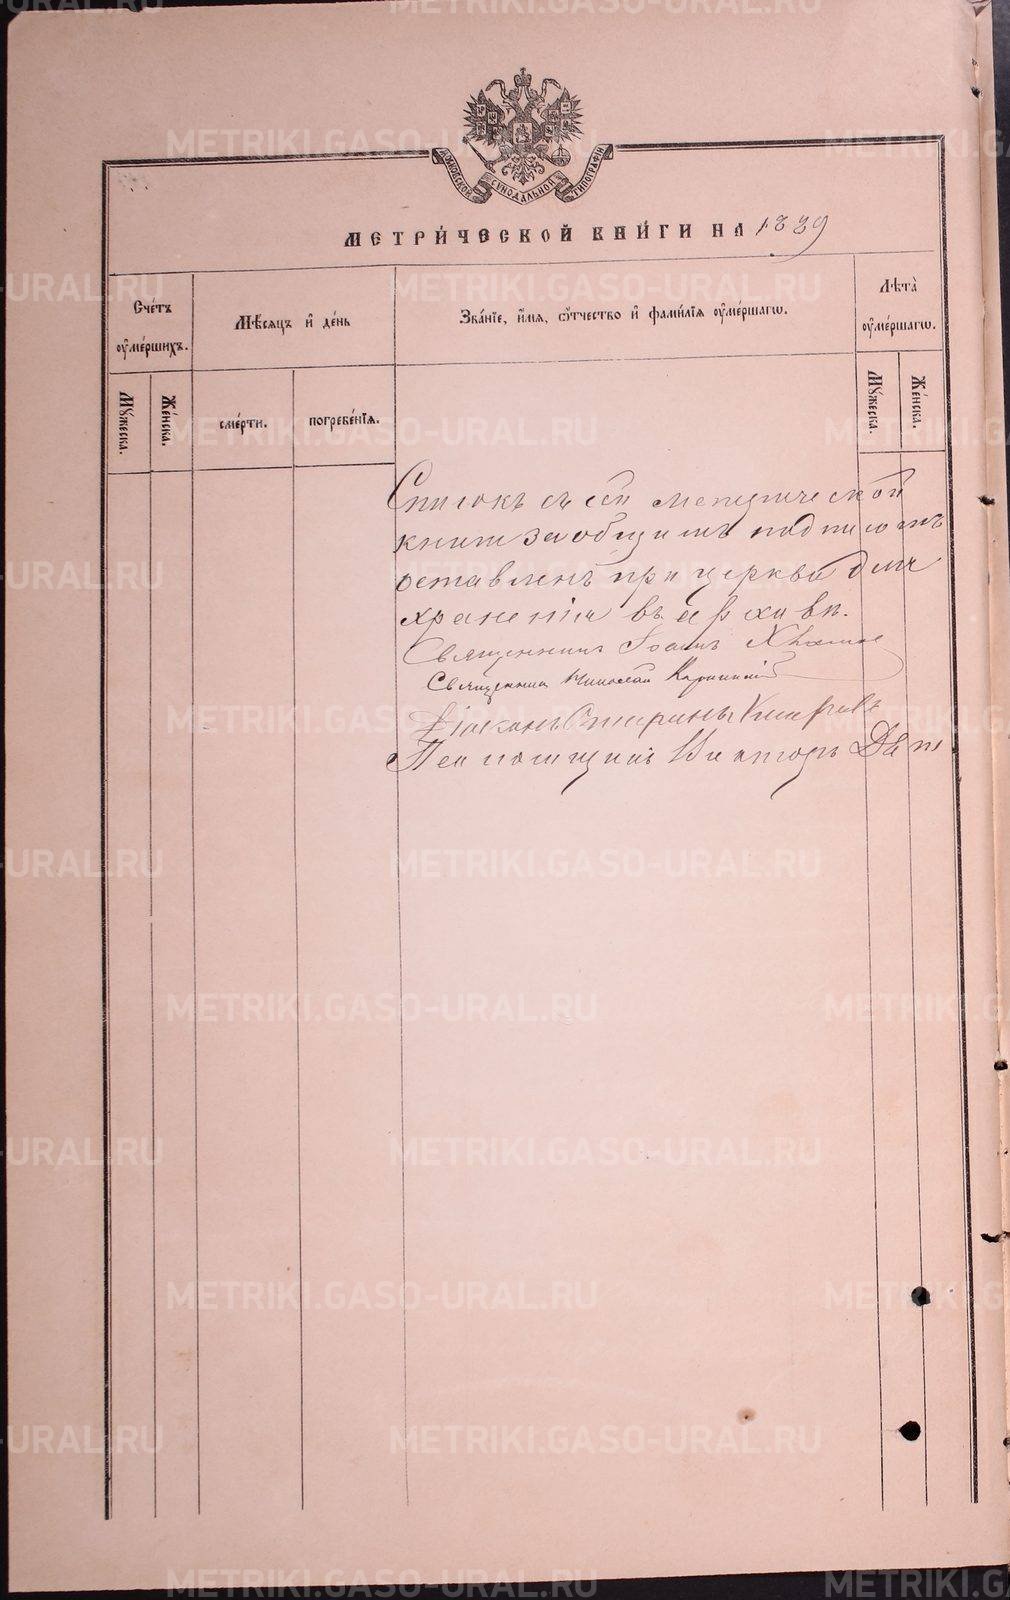 МОСКОВСКОЙ СѴНОДАЛЬНОЙ ТИПОГРАФІИ
МЕТРИ́ЧЕСКОЙ КНИ́ГИ НА 1889
Сче́тъ ᲂу҆ме́ршихъ.
Мѣ́сѧцъ и҆ де́нь
Зва́нїе, и҆́мѧ, ѻ҆́тчество и҆ фами́лїѧ ᲂу҆ме́ршагѡ.
Лѣта̀ ᲂу҆ме́ршагѡ.
Мꙋ́жеска.
Же́нска.
сме́рти.
погребе́нїѧ.
Мꙋ́жеска.
Же́нска.
Списокъ съ сей метрической
книги за общимъ подписомъ
оставленъ при церкви для
храненія въ архивѣ.
Священникъ Іоаннъ
Священникъ Николай
Діаконъ
Псаломщикъ Викторъ
METRIKI.GASO-URAL.RU